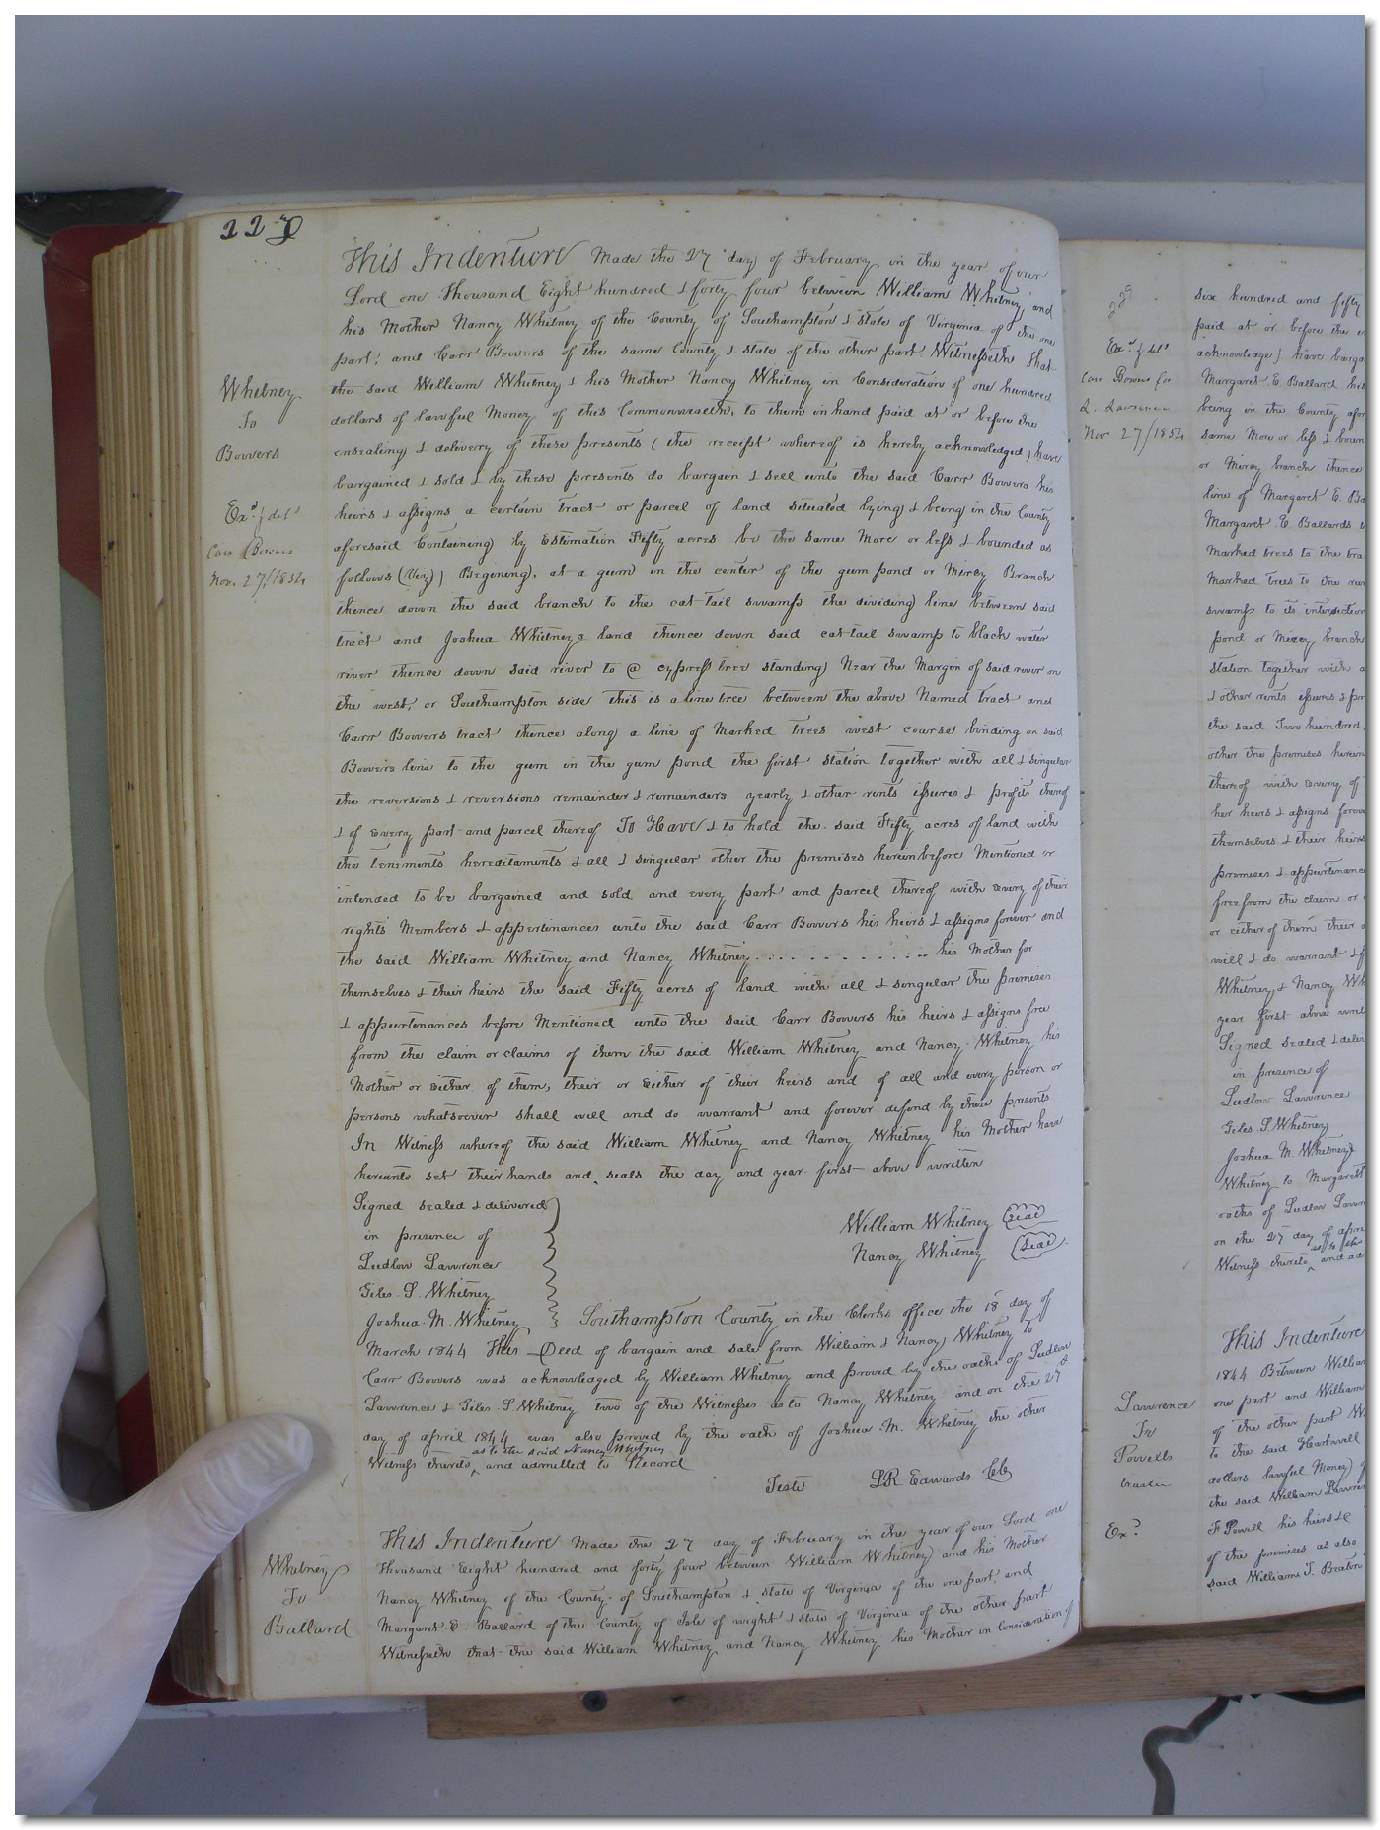 This Indenture Made the 27 day of February in the year of our
Lord one Thousand Eight hundred & forty four between William Whitney and
his Mother Nancy Whitney of the County of Southampton & State of Virginia of the one
part, and Carr Bowers of the same County & state of the other part Witnesseth That
the said William Whitney & his Mother Nancy Whitney in Consideration of one hundred
dollars of lawful Money of this Commonwealth, to them in hand paid at or before the
ensealing & delivery of these presents (the receipt whereof is hereby acknowledged) have
bargained & sold & by these presents do bargain & sell unto the said Carr Bowers his
heirs & assigns a certain tract or parcel of land situated lying & being in the County
aforesaid Containing by Estimation Fifty acres be the same More or less & bounded as
follows (Viz) Begining, at a gum in the center of the gum pond or Mirey Branch
thence down the said branch to the cat-tail swamp the dividing line between said
tract and Joshua Whitneys land thence down said cat-tail swamp to black water
river thence down said river to @ cypress tree standing Near the Margin of said river on
the west, or Southampton side this is a line tree between the above Named tract and
Carr Bowers tract thence along a line of Marked Trees west course binding on said
Bowers line to the gum in the gum pond the first station together with all & singular
the reversions & reversions remainder & remainders yearly & other rents issues & profits thereof
& of every part and parcel thereof To Have & to hold the said Fifty acres of land with
the tenements hereditaments & all & singular other the premises hereinbefore Mentioned or
intended to be bargained and sold and every part and parcel thereof with every of their
rights Members & appertinances unto the said Carr Bowers his heirs & assigns forever and
the said William Whitney and Nancy Whitney . . . . . . . . . . . . his Mother for
themselves & their heirs the said Fifty acres of land with all & singular the premises
& appurtenances before Mentioned unto the said Carr Bowers his heirs & assigns free
from the claim or claims of them the said William Whitney and Nancy Whitney his
Mother or Either of them, their or Either of their heirs and of all and every person or
persons whatsoever shall will and do warrant and forever defend by these presents
In Witness whereof the said William Whitney and Nancy Whitney his Mother have
hereunto set their hands and seals the day and year first above written
Signed sealed & delivered
in presence of
Ludlow Lawrence
Giles S. Whitney
Joshua M. Whitney
William Whitney Seal
Nancy Whitney Seal
Southampton County in the Clerks office the 18 day of
March 1844 This Deed of bargain and sale from William & Nancy Whitney to
Carr Bowers was acknowledged by William Whitney and proved by the oaths of Ludlow
Lawrence & Giles S Whitney two of the Witnesses as to Nancy Whitney and on the 27th
day of april 1844 was also proved by the oath of Joshua M. Whitney the other
as to the said Nancy Whitney
Witness thereto ^ and admitted to Record
Teste LR Edwards Clk
This Indenture Made the 27 day of February in the year of our Lord one
Thousand Eight hundred and forty four between William Whitney and his Mother
Nancy Whitney of the County of Southampton & state of Virginia of the one part, and
Margaret E Ballard of the County of Isle of wight & state of Virginia of the other part
Witnesseth that the said William Whitney and Nancy Whitney his Mother in consideration of
Whitney
To
Bowers
Exd & deld
Carr Bowers
Nov. 27/1854
Whitney
To
Ballard
229
Exd & deld
Carr Bowers for
L. Lawrence
Nov 27/1854
six hundred and fifty
paid at or before the
acknowledge) have
Margaret E. Ballard his
being in the County
same More or less &
or Mirey branch thence
line of Margaret E.
Margaret E Ballards
Marked trees to the
Marked trees to the
swamp to its intersection
pond or Mirey branch
station together with
& other rents issues &
the said Two hundred
other the premises
thereof with every of
her heirs & assigns
themselves & their heirs
premises & appurtenance
free from the claim or
or either of them their
will & do warrant &
Whitney & Nancy
year first above
Signed sealed &
in presence of
Ludlow Lawrence
Giles S. Whitney
Joshua M. Whitney
Whitney to Margaret
oaths of Ludlow
on the 27 day of
as to the
Witness thereto ^ and
This Indenture
1844 Between
one part and William
of the other part
to the said Hartwell
dollars lawful Money
the said William
F Powell his heirs &c
of the premises as also
said William T. Beaton
Lawrence
To
Powells
trustee
Exd